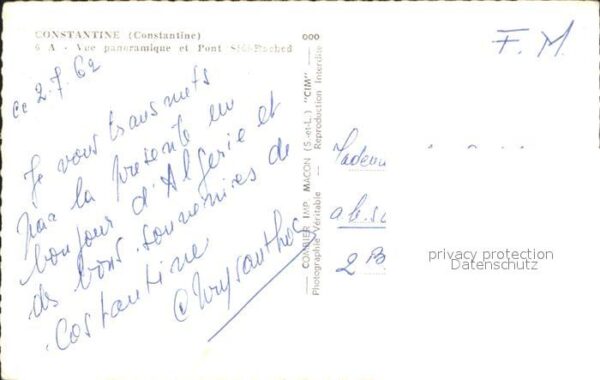 CONSTANTINE (Constantine)
6 A - Vue panoramique et Pont Sidi-Rached
ce 2.7.62
Je vous transmets
par la présente un
bonjour d'Algérie et
des bons souvenires de
Costantine
Chrysanthe
COMBIER IMP. MACON (S.-et-L.) "CIM"
Photographie Véritable - Reproduction Interdite
F. M.
2 B
privacy protection
Datenschutz